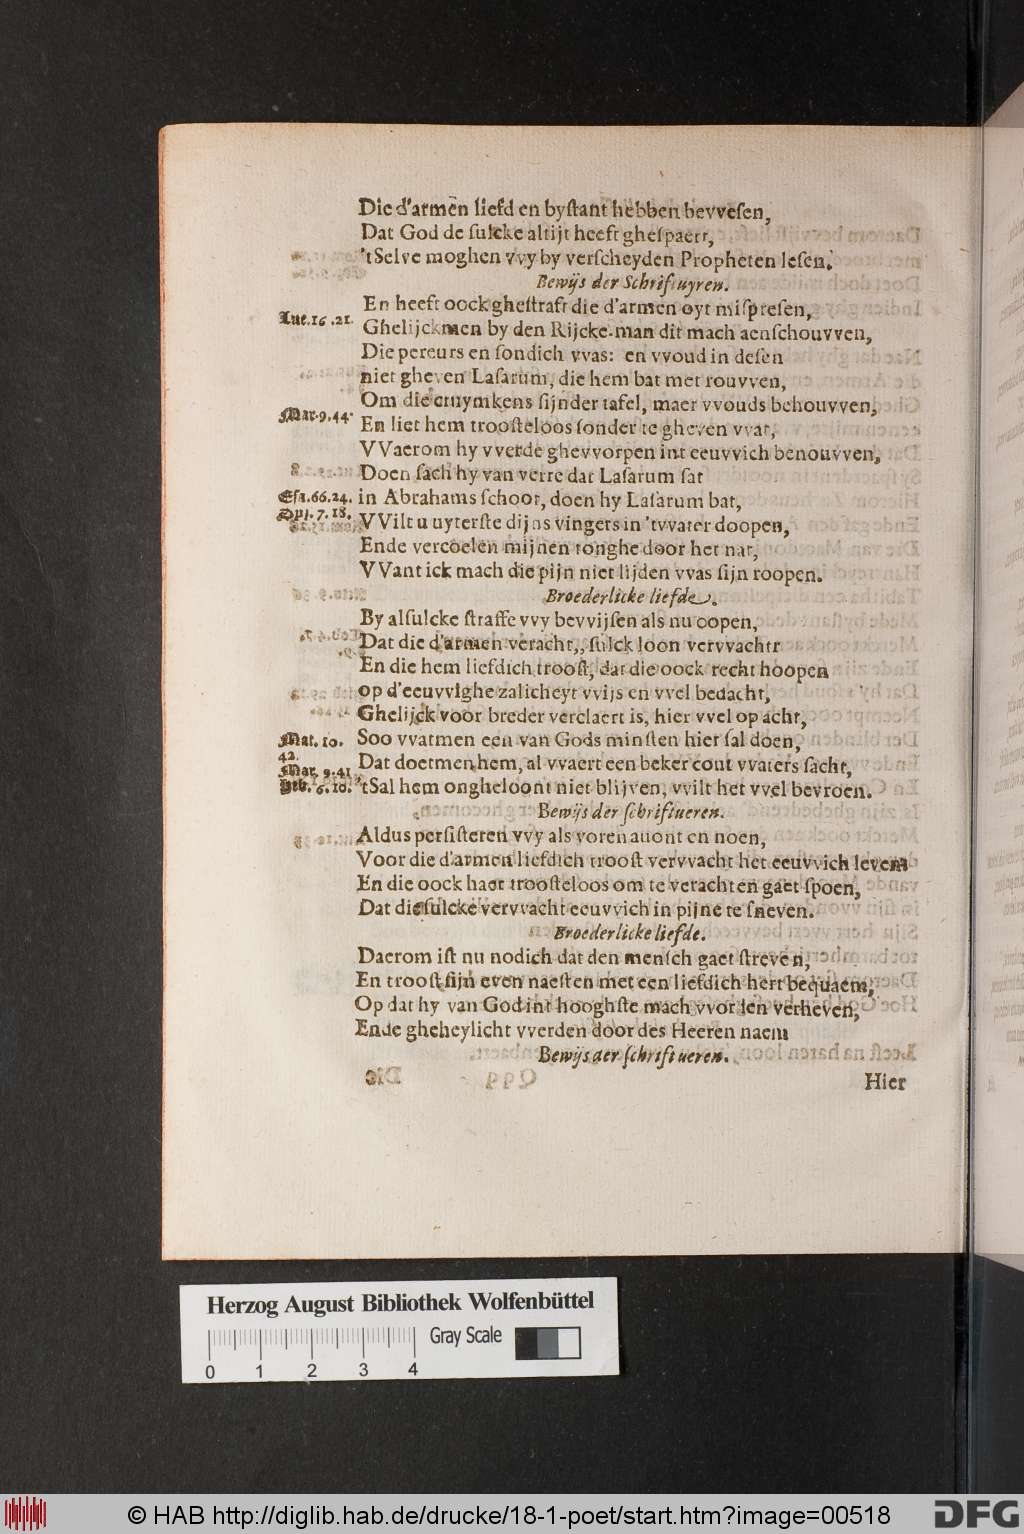 Die d'armēn liefd en bystant hebben bevvesen,
Dat God de sulcke altijt heeft ghespaert,
'tSelve moghen vvy by verscheyden Propheten lesen.
Bewijs der Schriftuyren.
En heeft oock ghestraft die d'armen oyt mispresen,
Luc.16.21.
Ghelijckmen by den Rijcke-man dit mach aenschouvven,
Die pereurs en sondich vvas: en vvoud in desen
niet gheven Lasarum, die hem bat met rouvven,
Om die cruymkens sijnder tafel, maer vvouds behouvven,
Mar.9.44.
En liet hem troosteloos sonder te gheven vvat,
VVaerom hy vverde ghevvorpen int eeuvvich benouvven,
Doen sach hy van verre dat Lasarum sat
Esa.66.24.
in Abrahams schoot, doen hy Lasarum bat,
Apj.7.18.
VVilt u uyterste dijns vingers in 'tvvater doopen,
Ende vercoelen mijnen tonghe door het nat,
VVant ick mach die pijn niet lijden vvas sijn roopen.
Broederlicke liefde.
By alsulcke straffe vvy bevvijsen als nu oopen,
Dat die d'armen veracht,, sulck loon vervvacht
En die hem liefdich troost, dat die oock recht hoopen
op d'eeuvvighe zalicheyt vvijs en vvel bedacht,
Ghelijck voor breder verclaert is, hier vvel op acht,
Mat. 10.
42.
Soo vvatmen een van Gods minsten hier sal doen,
Mar. 9.41
Dat doetmen hem, al vvaert een beker cout vvaters sacht,
Heb. 6.10.
'tSal hem ongheloont niet blijven, vvilt het vvel bevroen.
Bewijs der schriftueren.
Aldus persisteren vvy als voren avont en noen,
Voor die d'armen liefdich troost vervvacht het eeuvvich leven
En die oock haer troosteloos om te verachten gaet spoen,
Dat die sulcke vervvacht eeuvvich in pijne te sneven.
Broederlicke liefde.
Daerom ist nu nodich dat den mensch gaet streven,
En troost sijn even naesten met een liefdich hert bequaem,
Op dat hy van God int hooghste mach vvorden verheven,
Ende gheheylicht vverden door des Heeren naem
Bewijs der schriftueren.
Hier
Herzog August Bibliothek Wolfenbüttel
Gray Scale
0 1 2 3 4
© HAB http://diglib.hab.de/drucke/18-1-poet/start.htm?image=00518
DFG